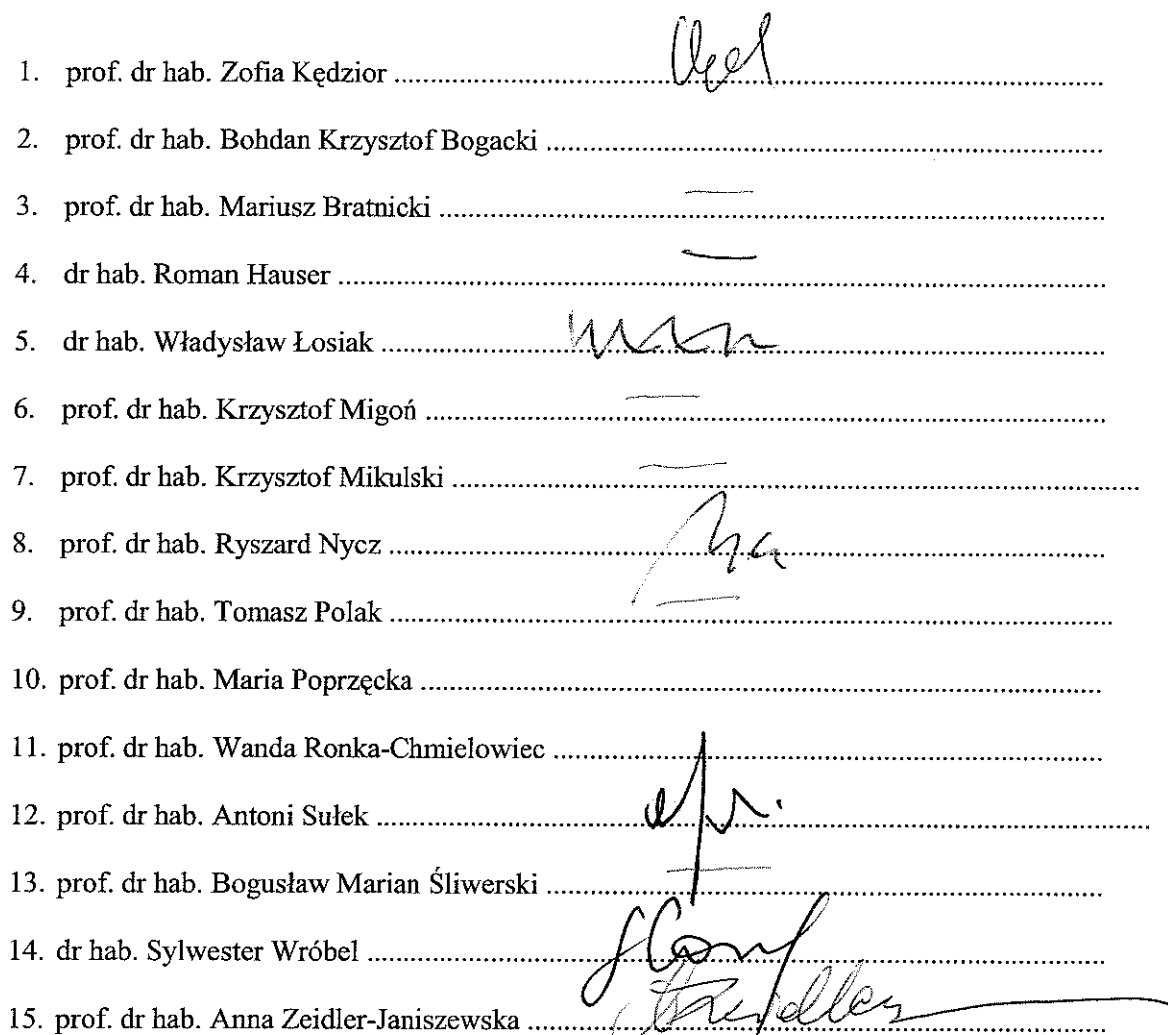 1. prof. dr hab. Zofia Kędzior ................................................................
2. prof. dr hab. Bohdan Krzysztof Bogacki ................................................................
3. prof. dr hab. Mariusz Bratnicki ................................................................
4. dr hab. Roman Hauser ................................................................
5. dr hab. Władysław Łosiak ................................................................
6. prof. dr hab. Krzysztof Migoń ................................................................
7. prof. dr hab. Krzysztof Mikulski ................................................................
8. prof. dr hab. Ryszard Nycz ................................................................
9. prof. dr hab. Tomasz Polak ................................................................
10. prof. dr hab. Maria Poprzęcka ................................................................
11. prof. dr hab. Wanda Ronka-Chmielowiec ................................................................
12. prof. dr hab. Antoni Sułek ................................................................
13. prof. dr hab. Bogusław Marian Śliwerski ................................................................
14. dr hab. Sylwester Wróbel ................................................................
15. prof. dr hab. Anna Zeidler-Janiszewska ................................................................